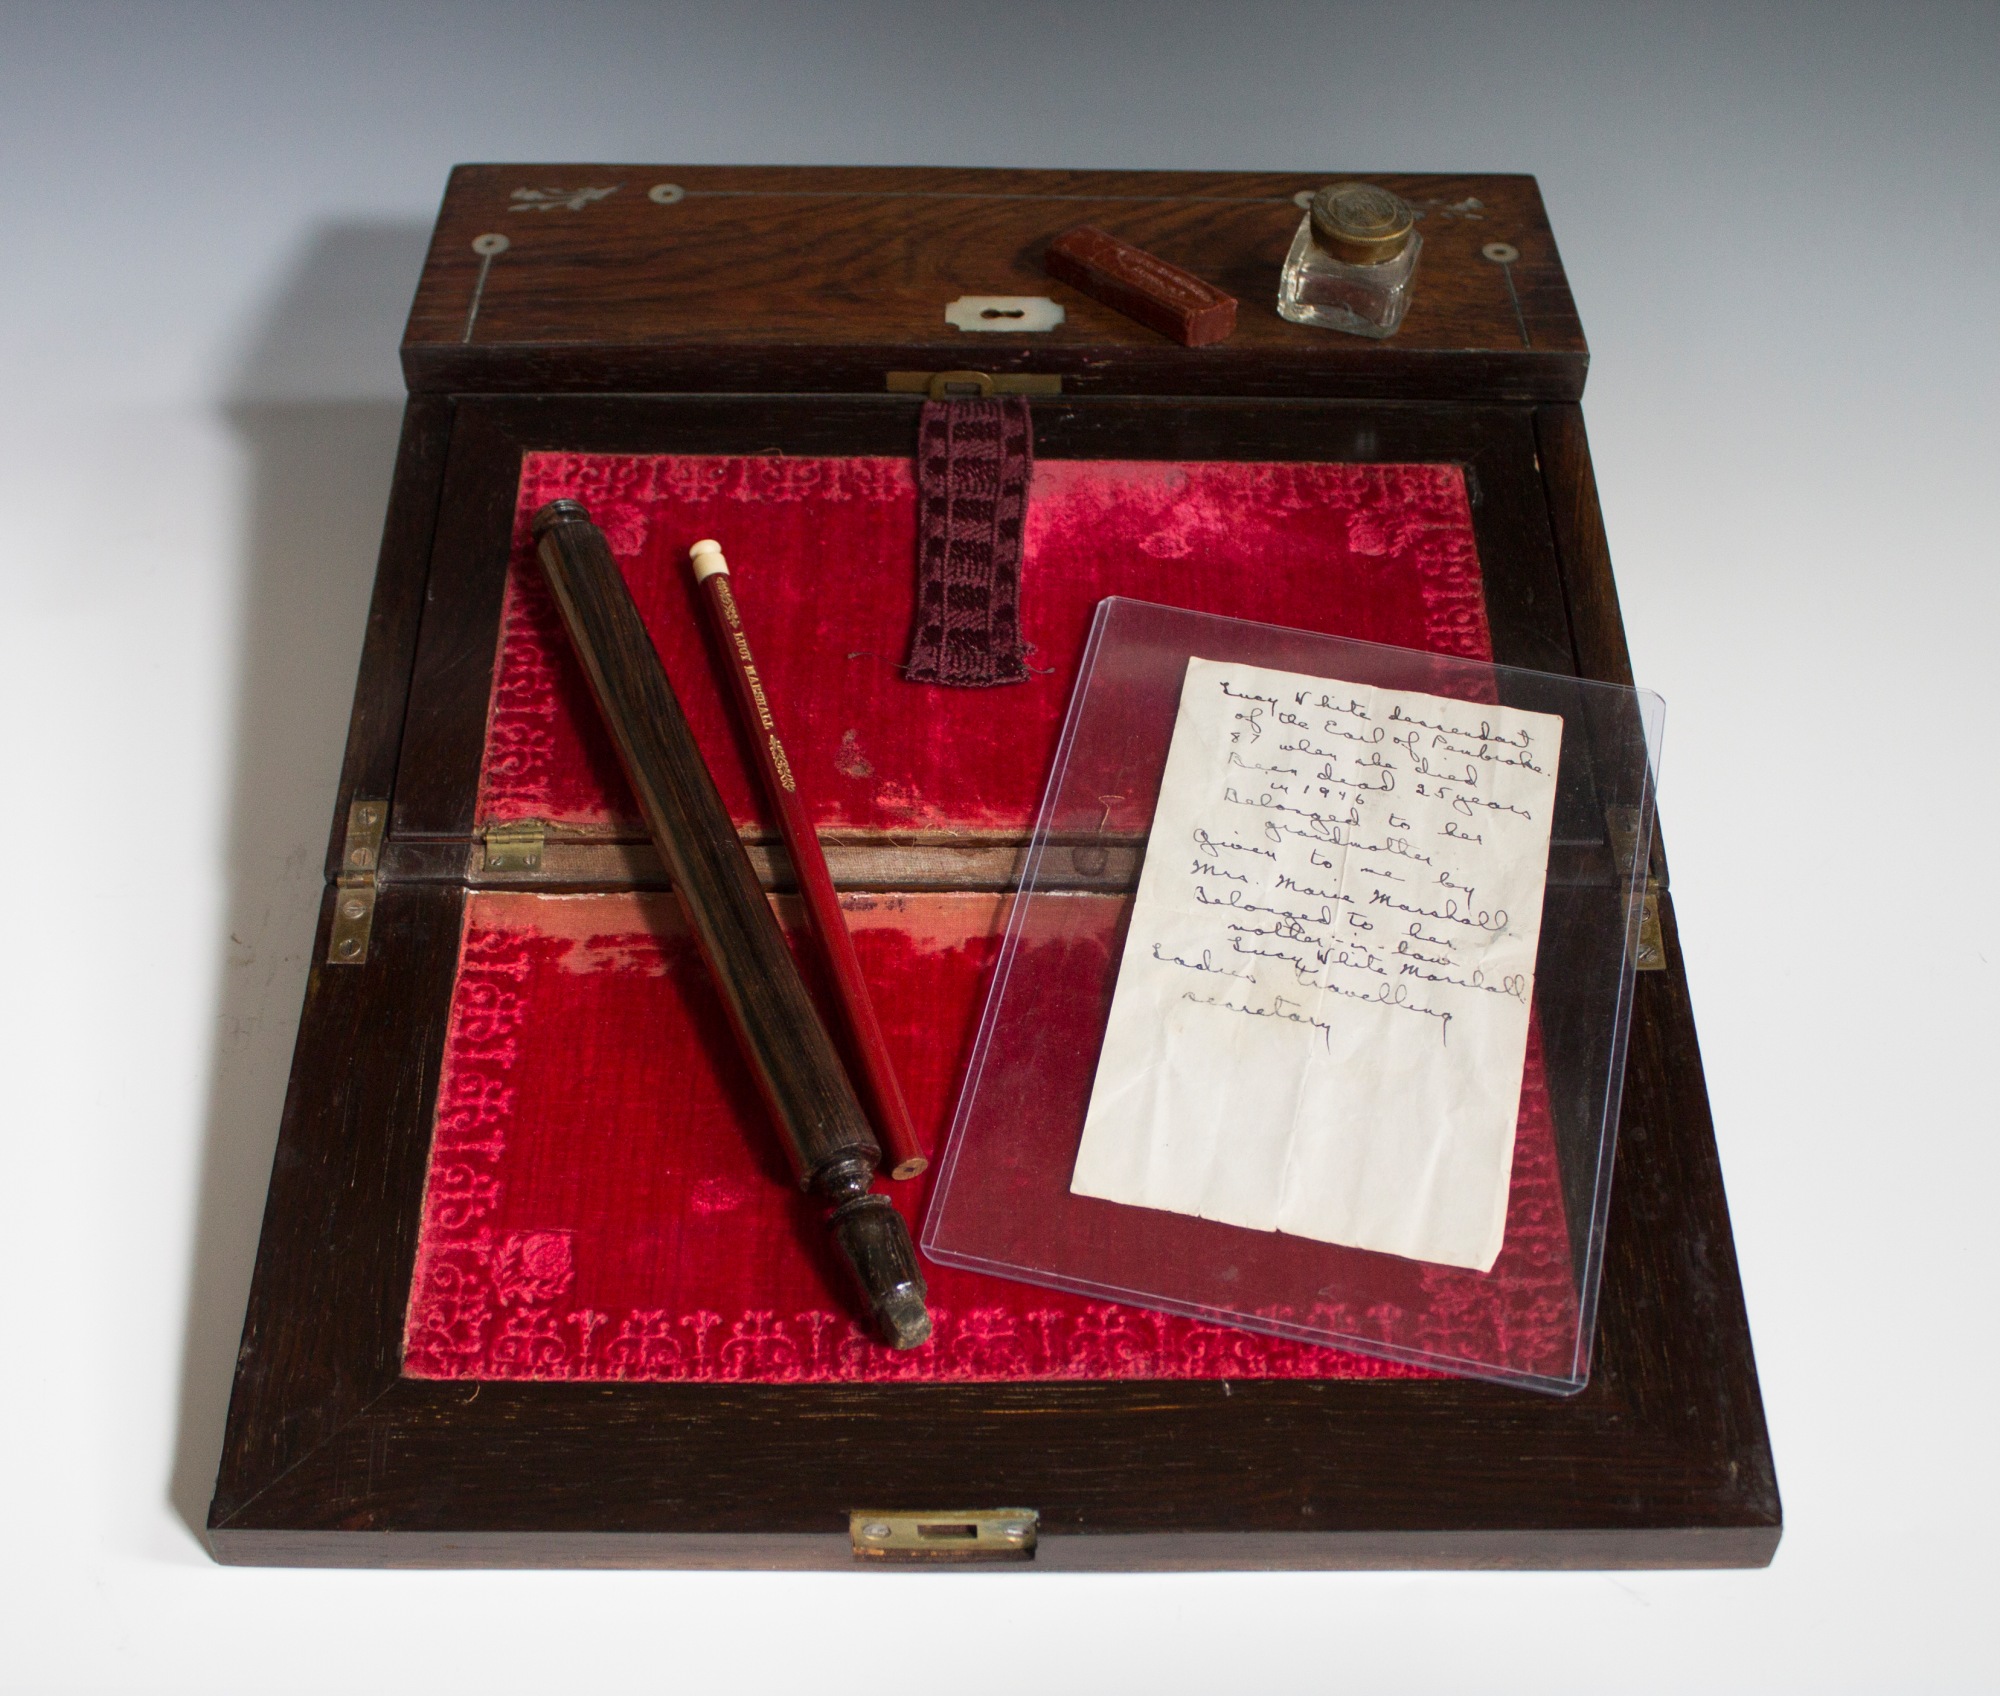 LUCY MARSHALL
Lucy White descendant
of the Earl of Pembroke.
87 when she died
Been dead 25 years
in 1946
Belonged to her
grandmother
Given to me by
Mrs. Marie Marshall.
Belonged to her
mother-in-law
Lucy White Marshall.
Ladies Travelling
secretary